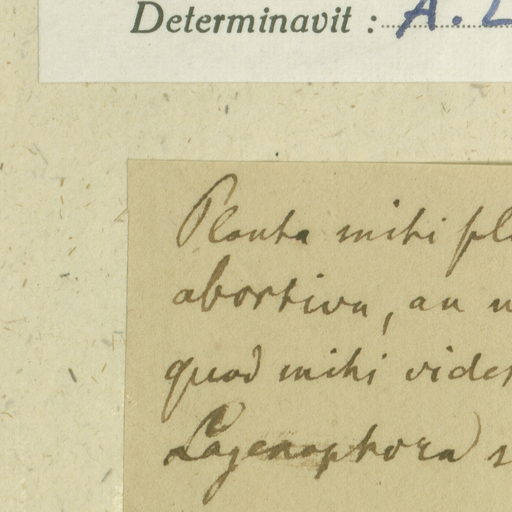 Determinavit : A. L
Planta mihi pl
abortiva, an
quod mihi vide
Lagenophora s